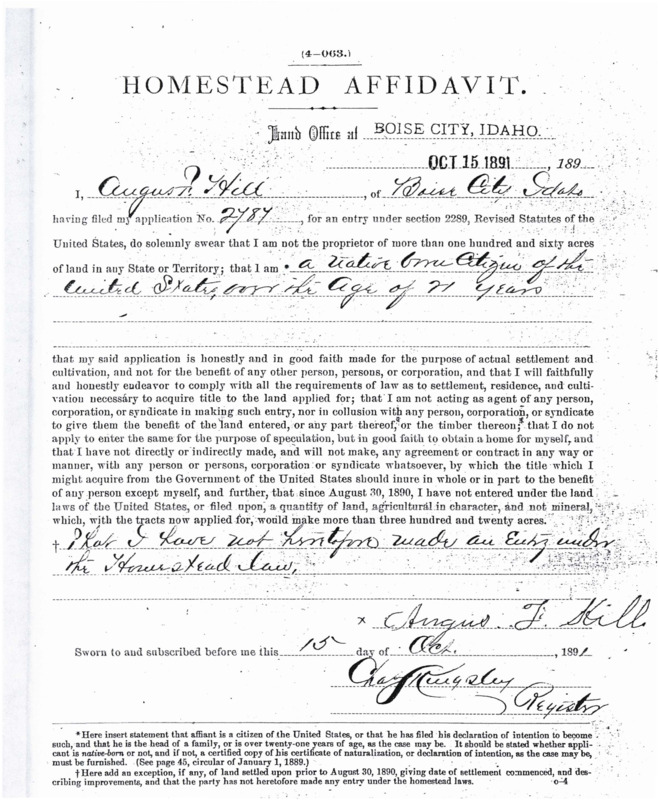 (4–063.)
HOMESTEAD AFFIDAVIT.
Land Office at BOISE CITY, IDAHO.
OCT 15 1891, 189
I, Angus F. Hill, of Boise City Idaho
having filed my application No. 2787, for an entry under section 2289, Revised Statutes of the
United States, do solemnly swear that I am not the proprietor of more than one hundred and sixty acres
of land in any State or Territory; that I am * a native born Citizen of the
United States, over the Age of 21 years
that my said application is honestly and in good faith made for the purpose of actual settlement and
cultivation, and not for the benefit of any other person, persons, or corporation, and that I will faithfully
and honestly endeavor to comply with all the requirements of law as to settlement, residence, and culti-
vation necessary to acquire title to the land applied for; that I am not acting as agent of any person,
corporation, or syndicate in making such entry, nor in collusion with any person, corporation, or syndicate
to give them the benefit of the land entered, or any part thereof, or the timber thereon; that I do not
apply to enter the same for the purpose of speculation, but in good faith to obtain a home for myself, and
that I have not directly or indirectly made, and will not make, any agreement or contract in any way or
manner, with any person or persons, corporation or syndicate whatsoever, by which the title which I
might acquire from the Government of the United States should inure in whole or in part to the benefit
of any person except myself, and further, that since August 30, 1890, I have not entered under the land
laws of the United States, or filed upon, a quantity of land, agricultural in character, and not mineral,
which, with the tracts now applied for, would make more than three hundred and twenty acres.
† That I have not heretofore made an Entry under
the Homestead law,
x Angus F. Hill
Sworn to and subscribed before me this 15 day of Oct., 1891
Chas Kingsley
Register
*Here insert statement that affiant is a citizen of the United States, or that he has filed his declaration of intention to become
such, and that he is the head of a family, or is over twenty-one years of age, as the case may be. It should be stated whether appli-
cant is native-born or not, and if not, a certified copy of his certificate of naturalization, or declaration of intention, as the case may be,
must be furnished. (See page 45, circular of January 1, 1889.)
†Here add an exception, if any, of land settled upon prior to August 30, 1890, giving date of settlement commenced, and des-
cribing improvements, and that the party has not heretofore made any entry under the homestead laws. o-4